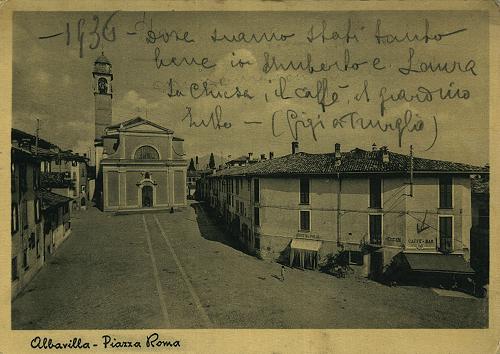 - 1936 - Dove siamo stati tanto
bene io Umberto e Laura
La chiesa, il caffè, il giardino
tutto - (Gigi
CAFFÈ-BAR
Albavilla - Piazza Roma